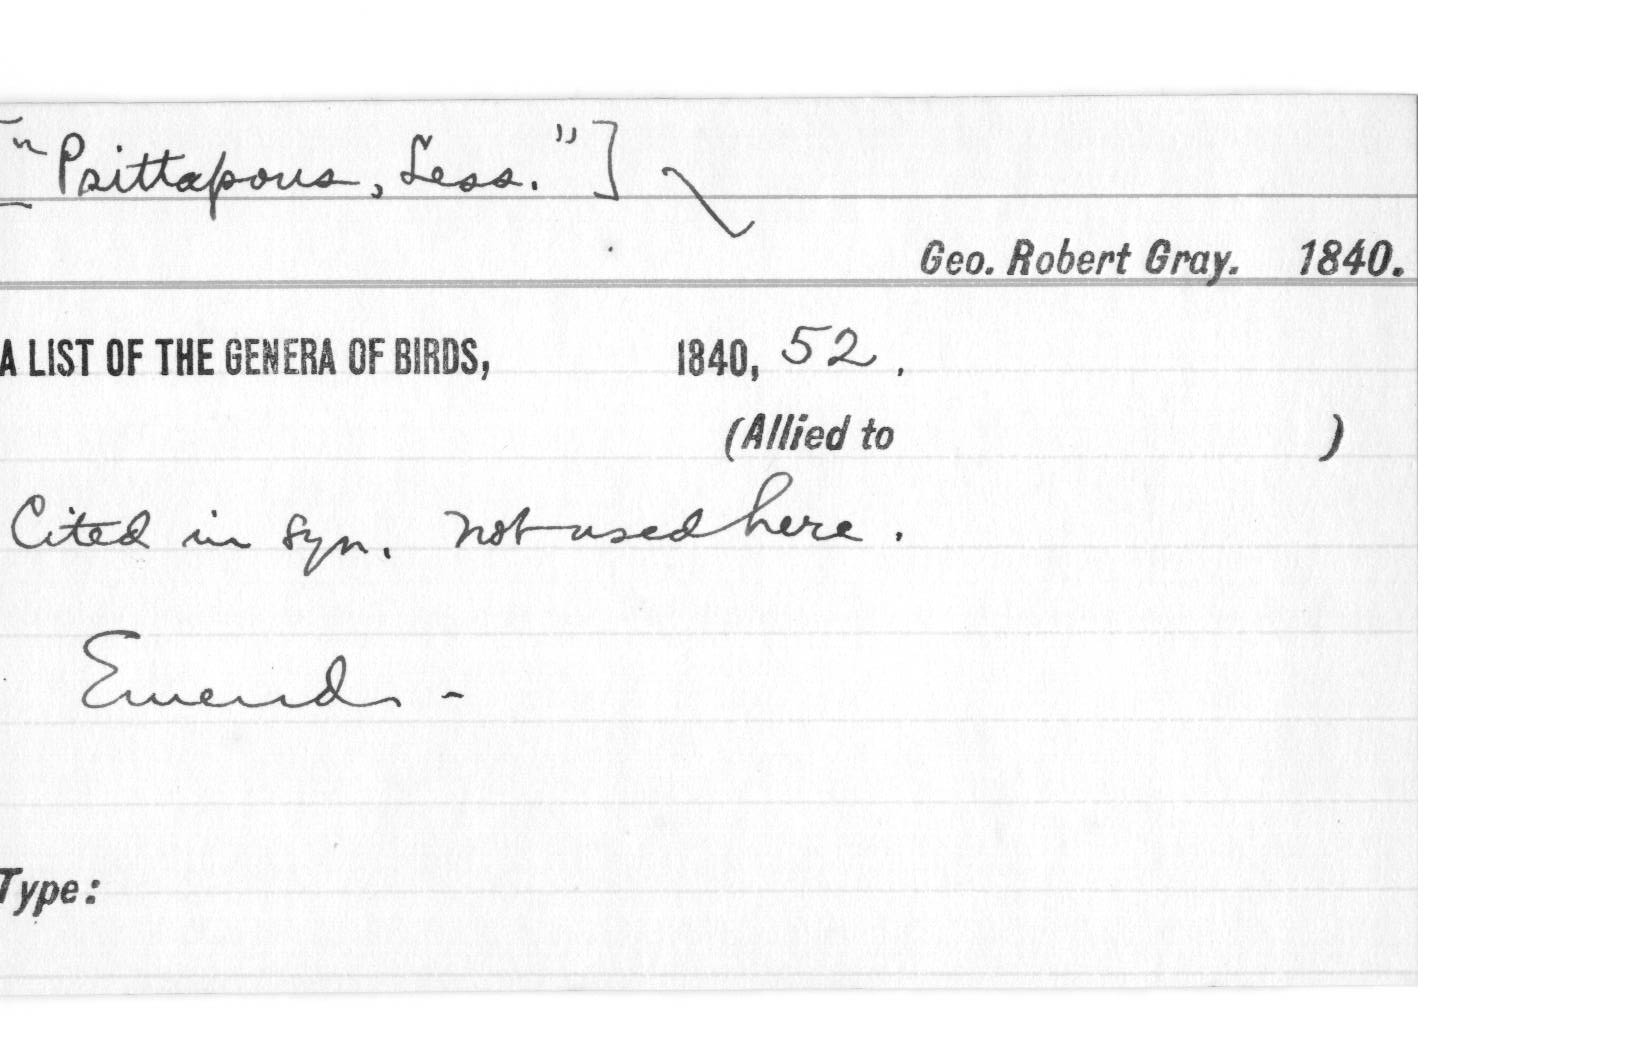 ["Psittapous, Less."]
Geo. Robert Gray. 1840.
A LIST OF THE GENERA OF BIRDS, 1840, 52.
(Allied to )
Cited in syn. not used here.
Emend -
Type: